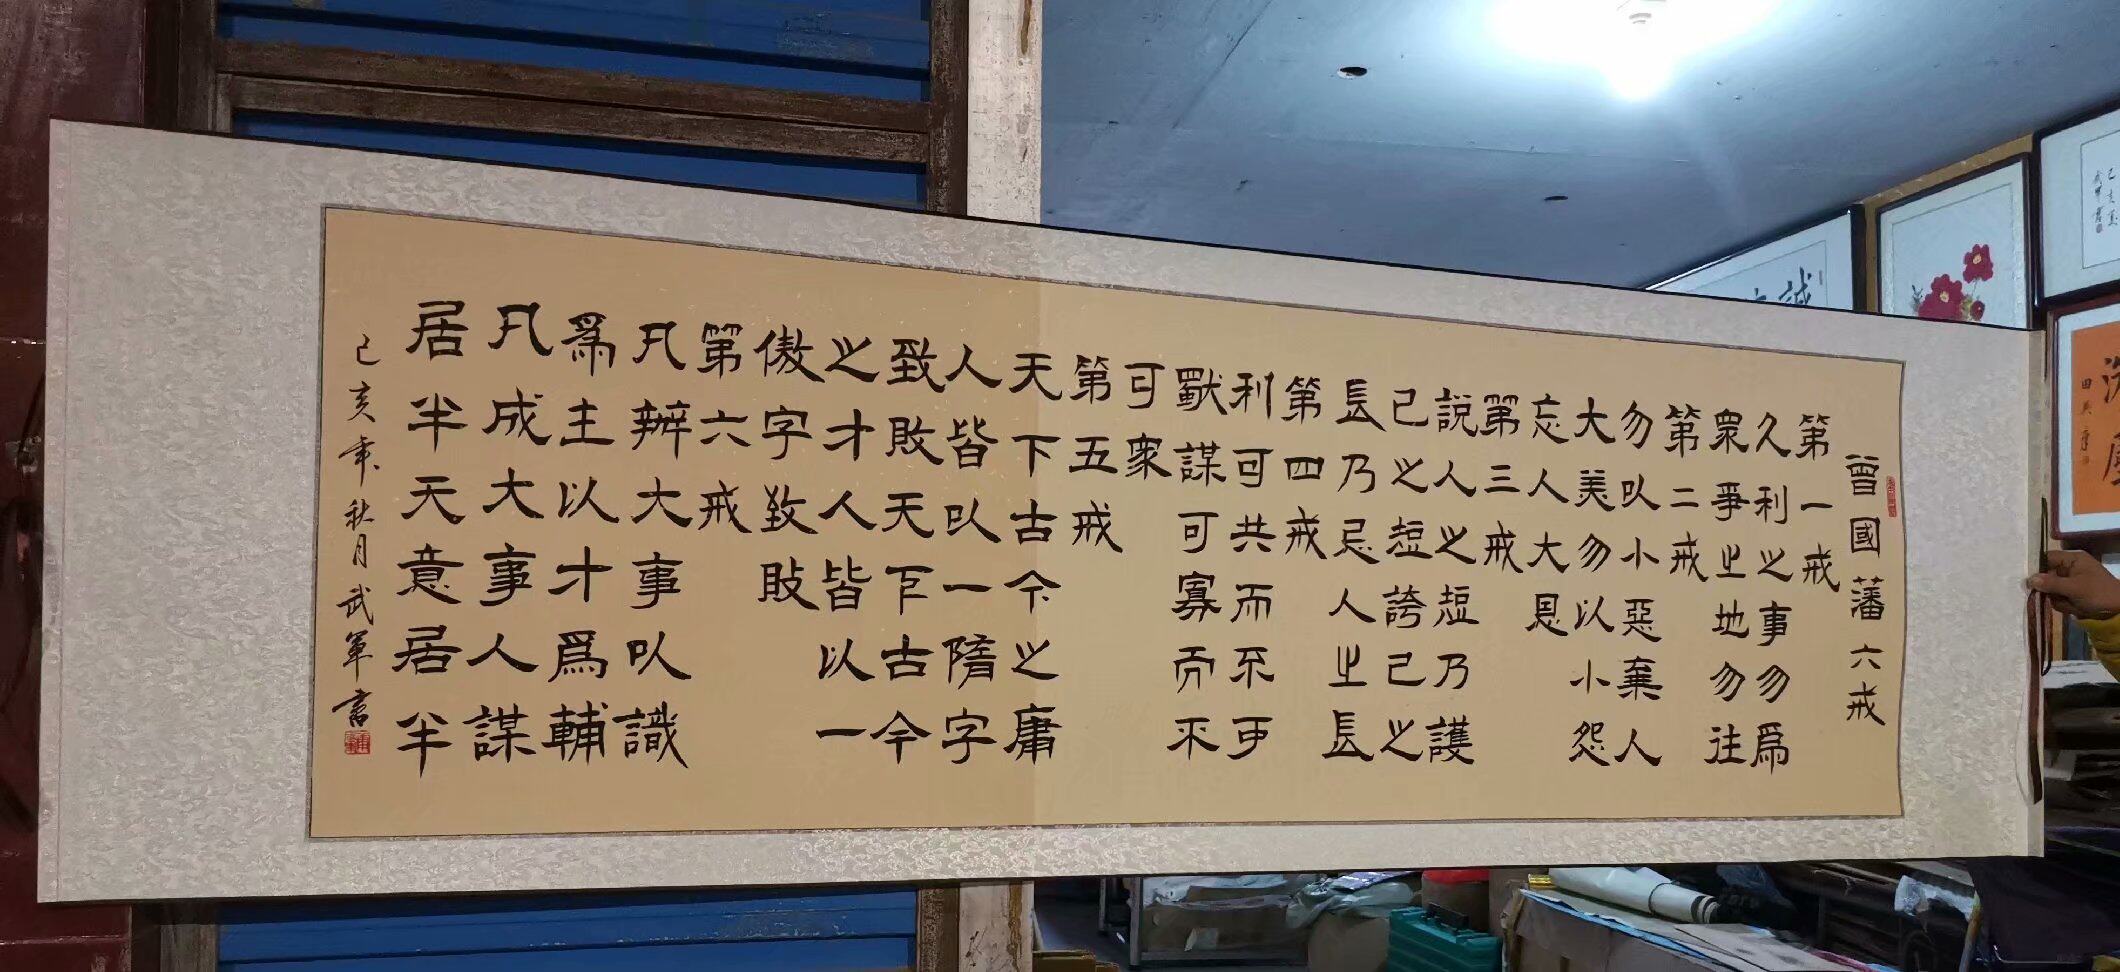 曾國藩六戒
第一戒
久利之事勿爲
衆爭之地勿往
第二戒
勿以小惡棄人
大美勿以小怨
忘人大恩
第三戒
説人之短乃護
己之短誇己之
長乃忌人之長
第四戒
利可共而不可
獨謀可寡而不
可衆
第五戒
天下古今之庸
人皆以一隋字
致敗天下古今
之才人皆以一
傲字致敗
第六戒
凡辦大事以識
爲主以才爲輔
凡成大事人謀
居半天意居半
己亥年秋月武軍書
誠